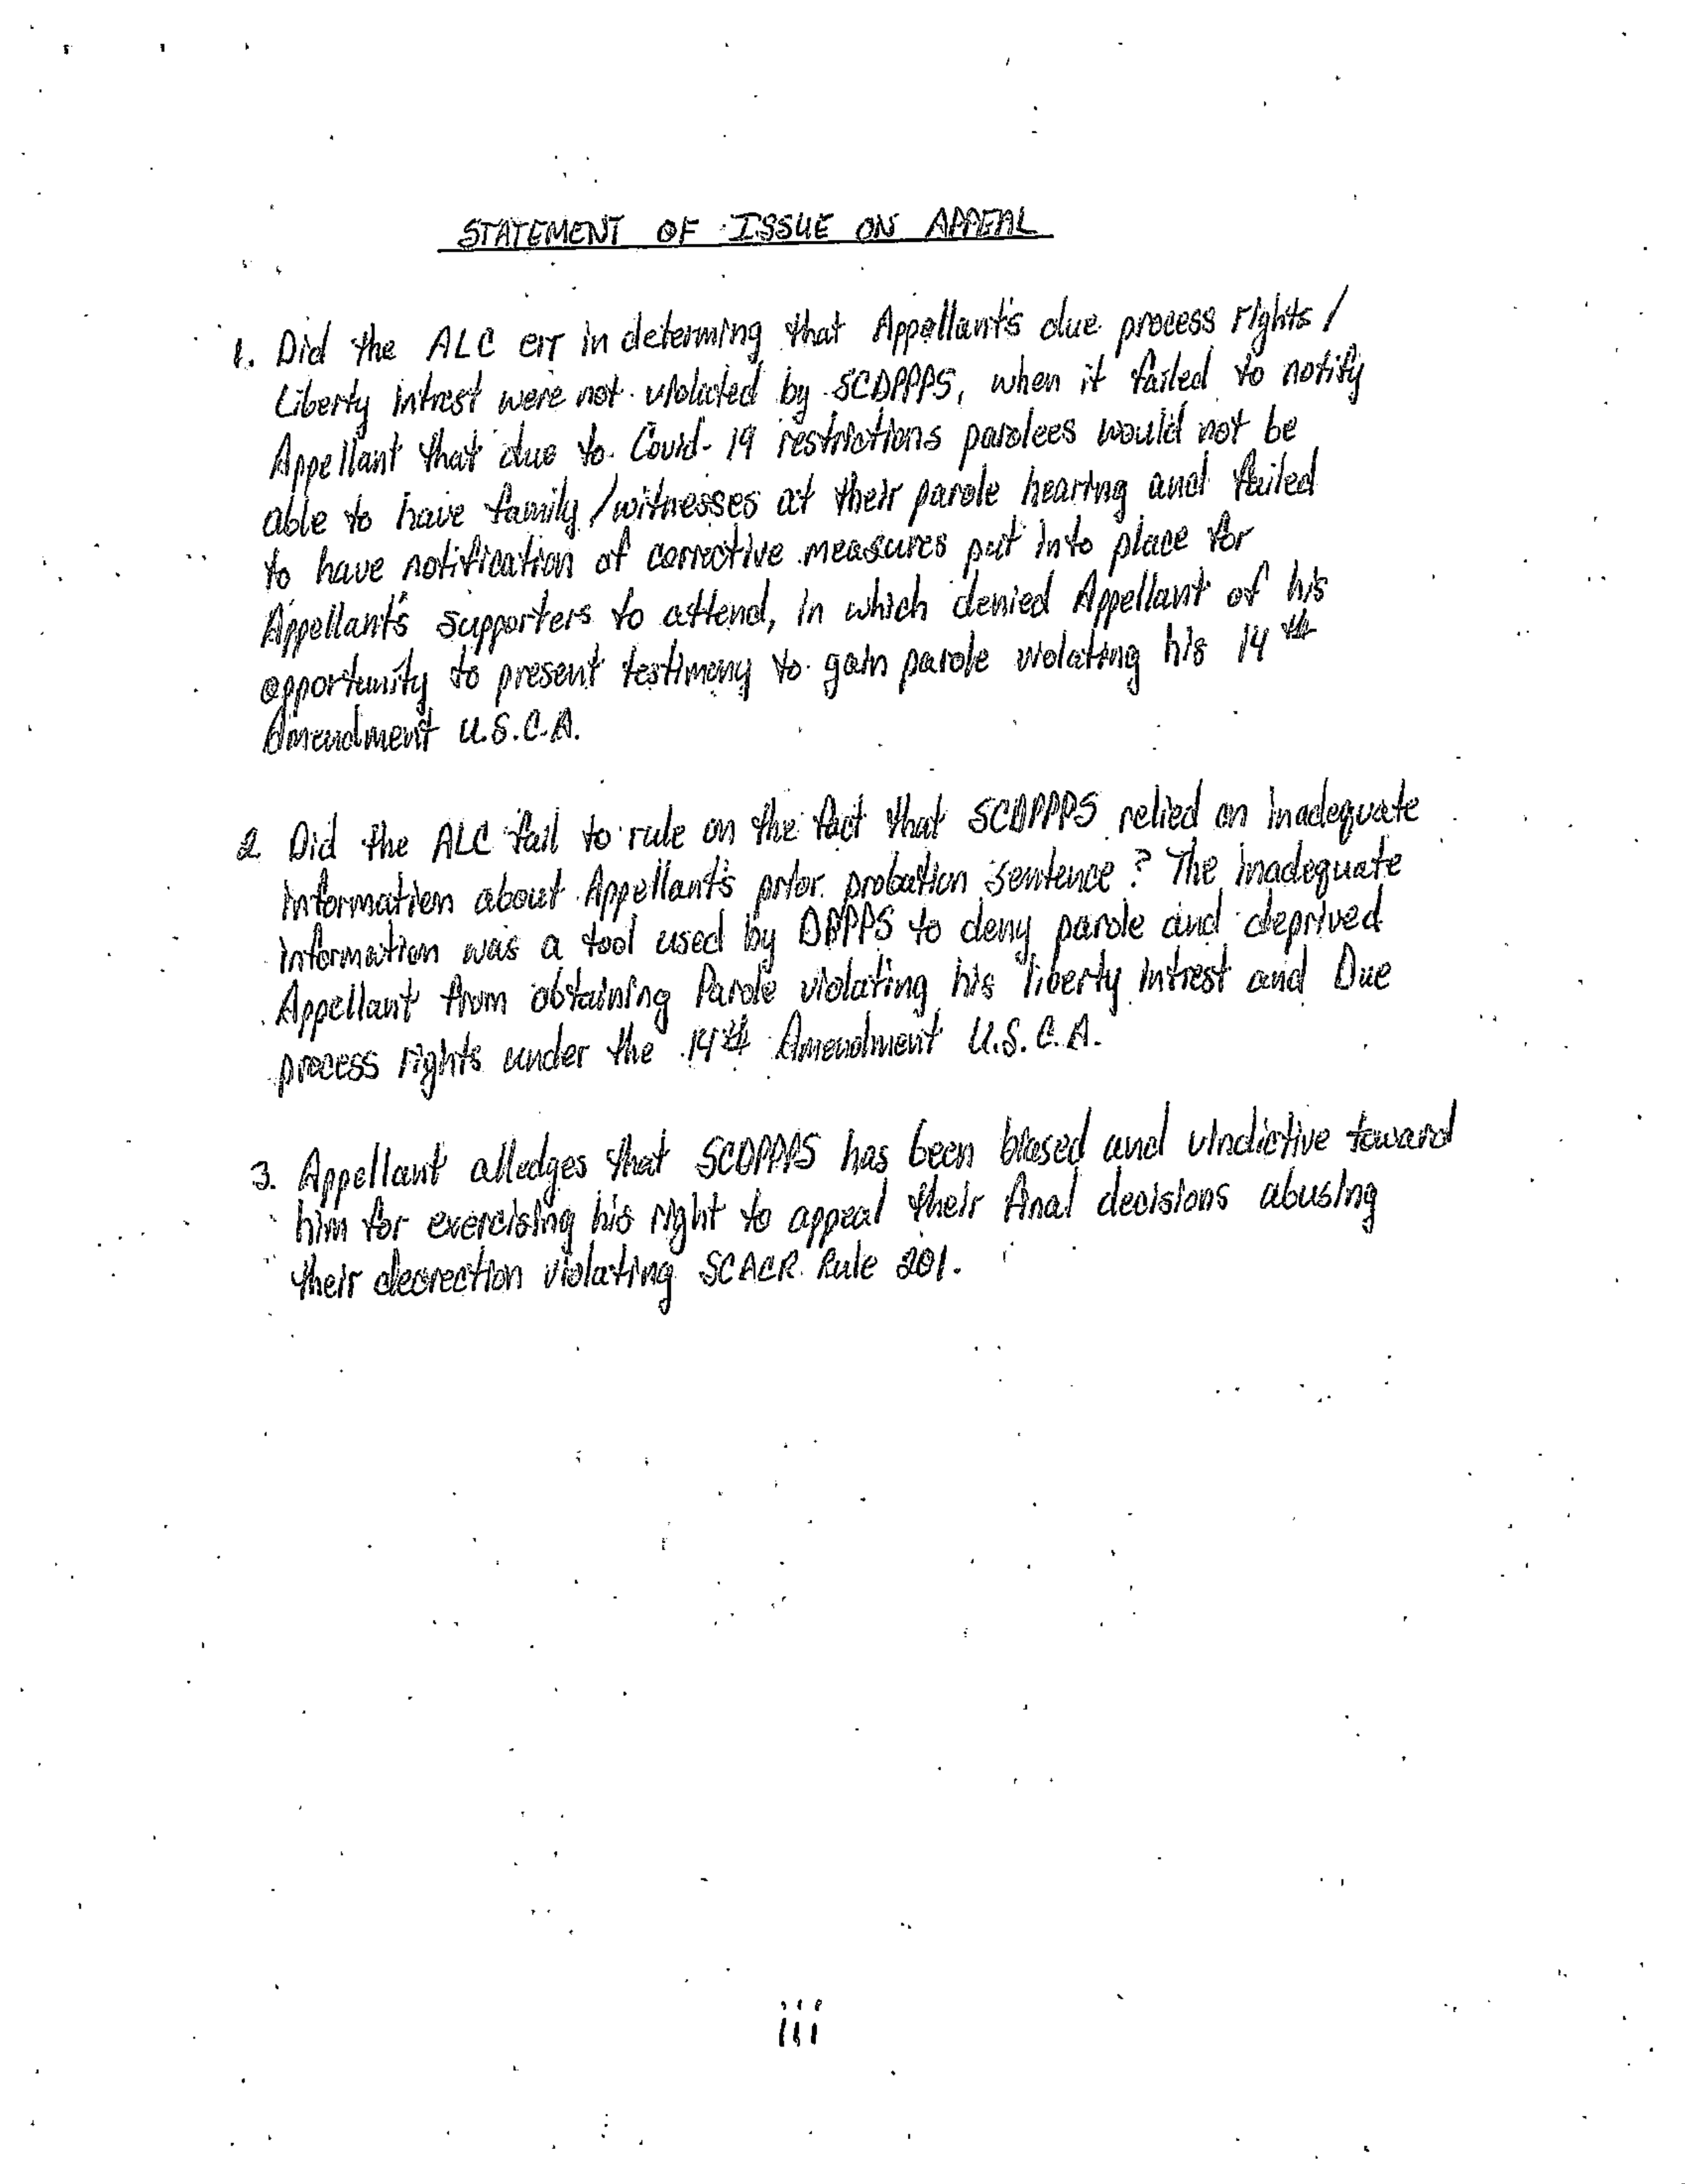 STATEMENT OF ISSUE ON APPEAL
1. Did the ALC err in determing that Appellant's due process rights/
Liberty Intrest were not violated by SCDPPPS, when it failed to notify
Appellant that due to Covid-19 restrictions parolees would not be
able to have family/witnesses at their parole hearing and failed
to have notification of corrective measures put into place for
Appellant's supporters to attend, in which denied Appellant of his
opportunity to present testimony to gain parole violating his 14th
Amendment U.S.C.A.
2. Did the ALC fail to rule on the fact that SCDPPPS relied on inadequate
information about Appellant's prior probation sentence? The inadequate
information was a tool used by DPPPS to deny parole and deprived
Appellant from obtaining Parole violating his liberty intrest and Due
process rights under the 14th Amendment U.S.C.A.
3. Appellant alledges that SCDPPPS has been biased and vindictive toward
him for exercising his right to appeal their final decisions abusing
their decrection violating SCACR Rule 201.
iii